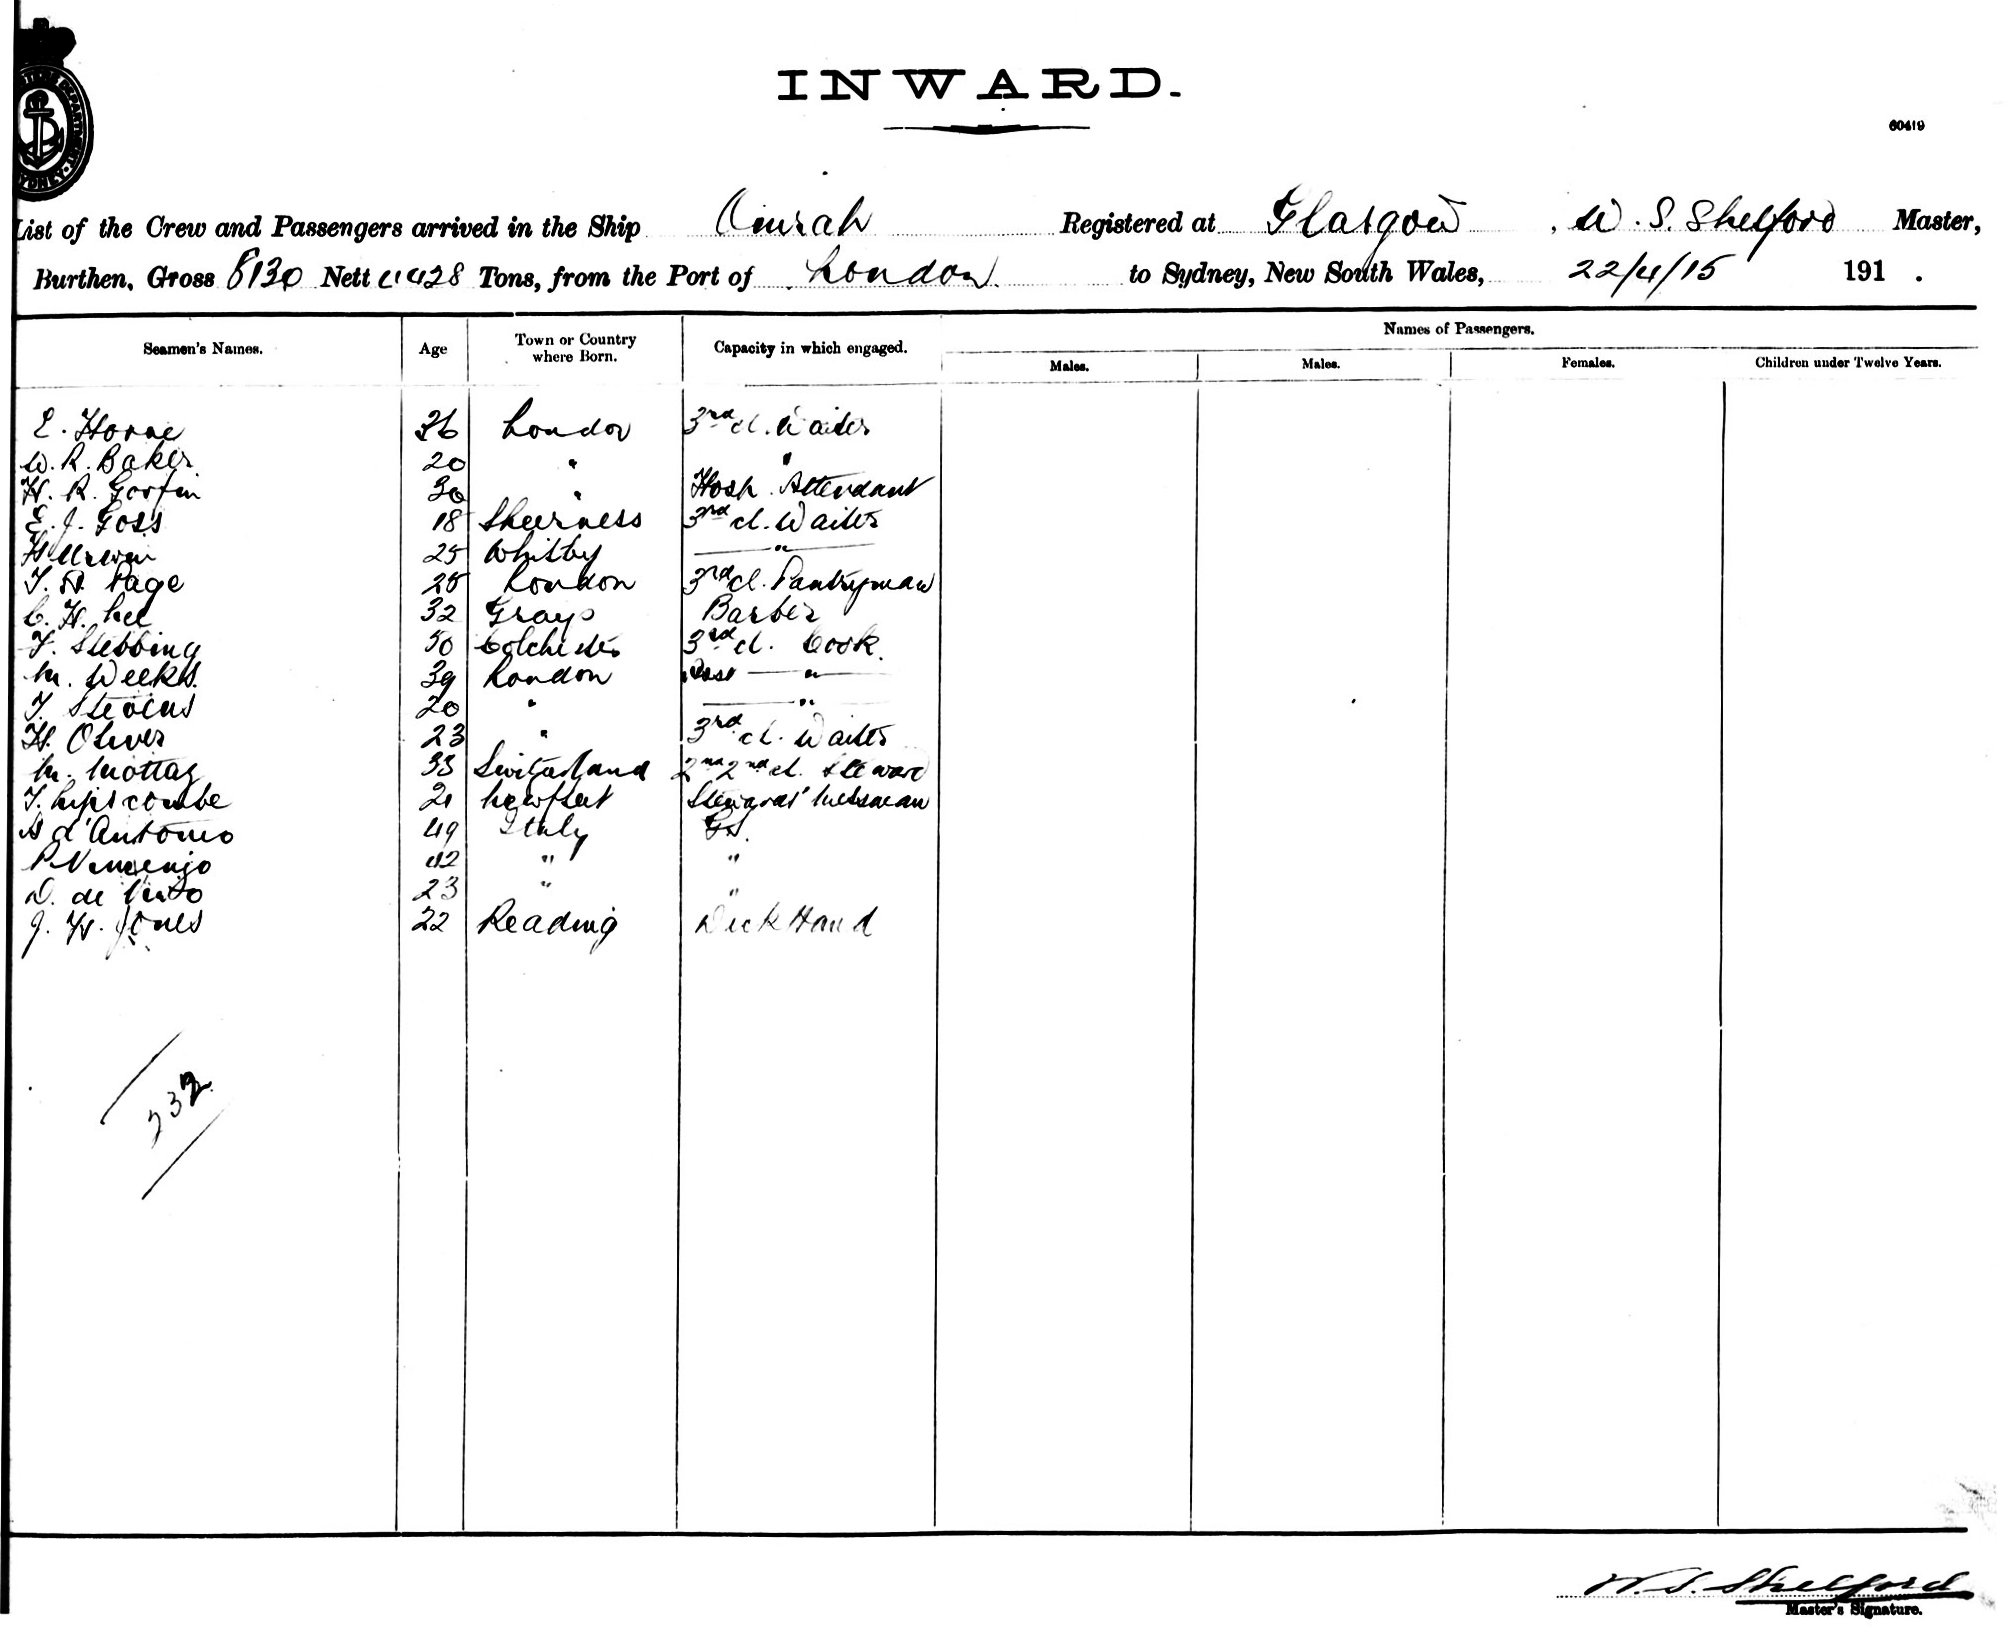 INWARD.
60419
List of the Crew and Passengers arrived in the Ship Omrah Registered at Glasgow, W. S. Shelford Master,
Burthen, Gross 8130 Nett 4428 Tons, from the Port of London to Sydney, New South Wales, 22/4/15 191 .
Names of Passengers.
Seamen's Names. Age Town or Country where Born. Capacity in which engaged. Males. Males. Females. Children under Twelve Years.
E. Horne 26 London 3rd cl. Waiter
W. R. Baker 20 " "
H. R. Gorfin 30 " Hosp. Attendant
E. J. Goss 18 Sheerness 3rd cl. Waiter
H. Urwin 25 Whitby "
T. H. Page 25 London 3rd cl. Pantryman
C. H. Lee 32 Grays Barber
F. Stebbing 50 Colchester 3rd cl. Cook.
M. Weeks. 39 London Asst "
T. Stevens 20 " "
H. Oliver 23 " 3rd cl. Waiter
M. Mottaz 33 Switzerland 2nd 2nd cl. Steward
T. Lipscombe 21 Stewards' Messman
d'Antonio 49 Italy G.S.
P. 42 " "
D. de Vito 23 " "
J. H. Jones 22 Reading Deck Hand
232
W. S. Shelford
Master's Signature.